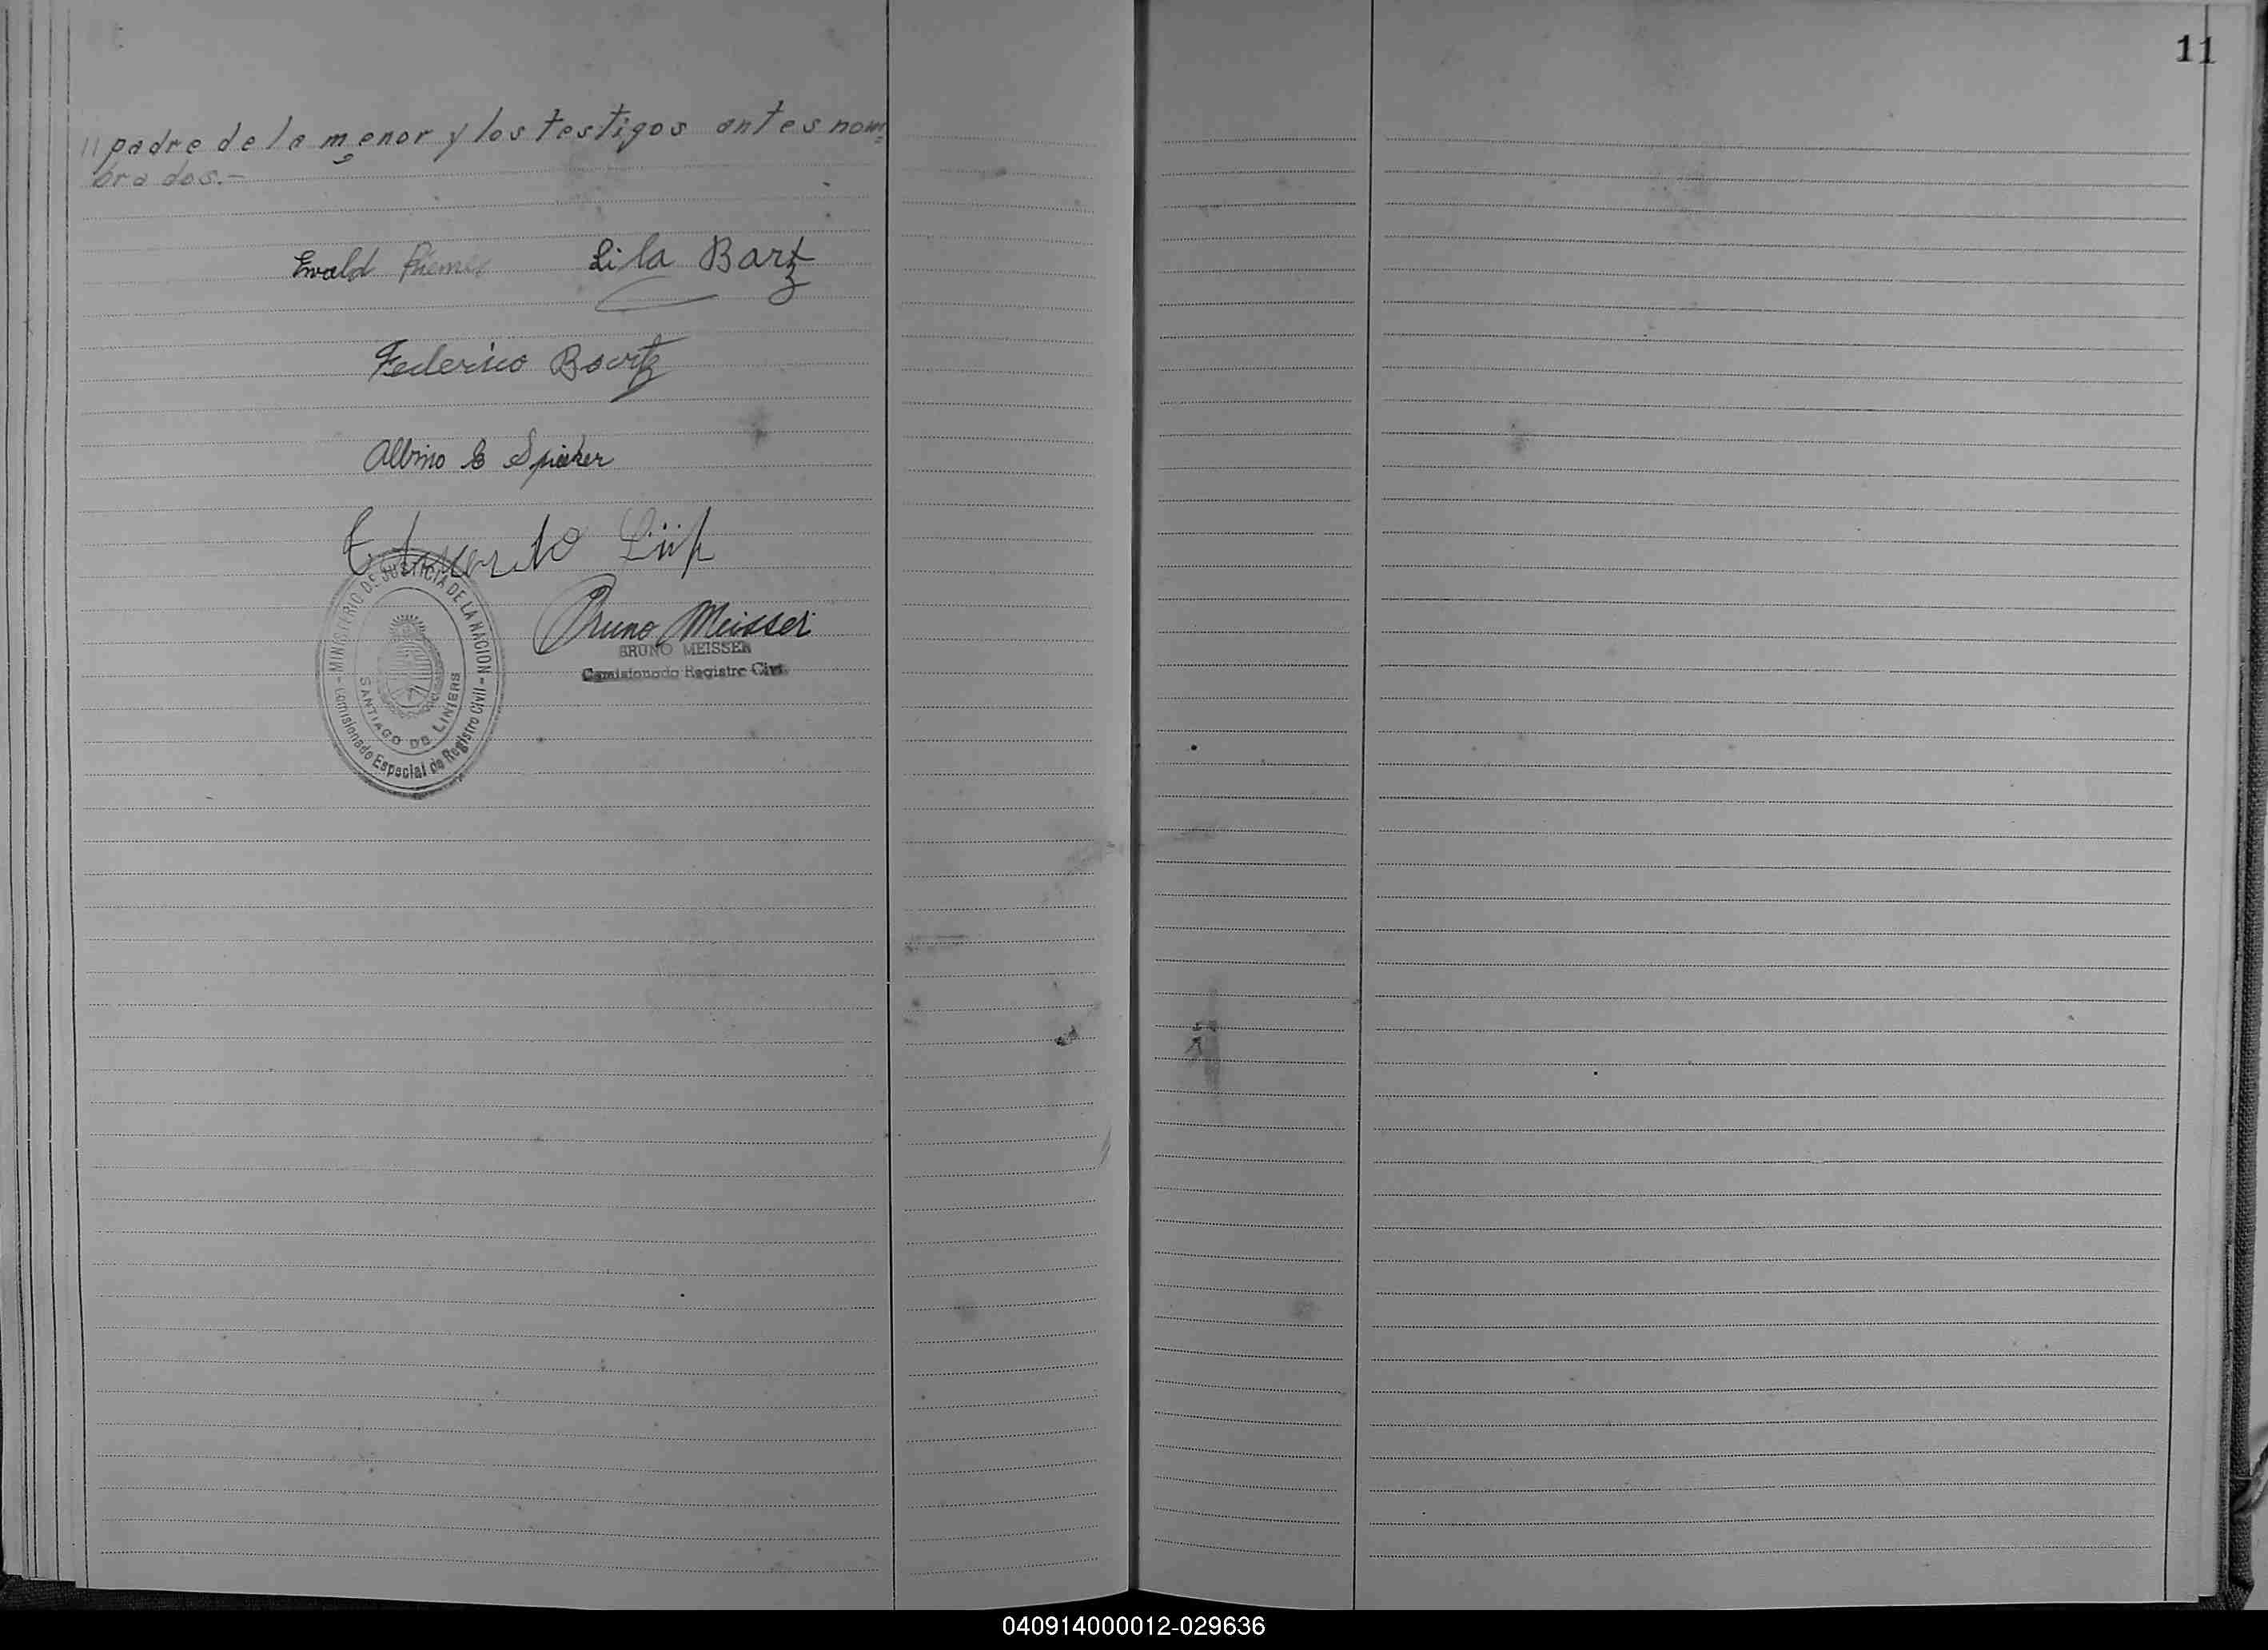 11
// padre de la menor y los testigos antes nom=
brados.-
Ewald Lila Bartz
Federico Bartz
Albino E Spieker
Eduardo Lüh
Bruno Meisser
BRUNO MEISSER
Comisionado Registro Civil
MINISTERIO DE JUSTICIA DE LA NACION
SANTIAGO DE LINIERS
Comisionado Especial de Registro Civil
040914000012-029636